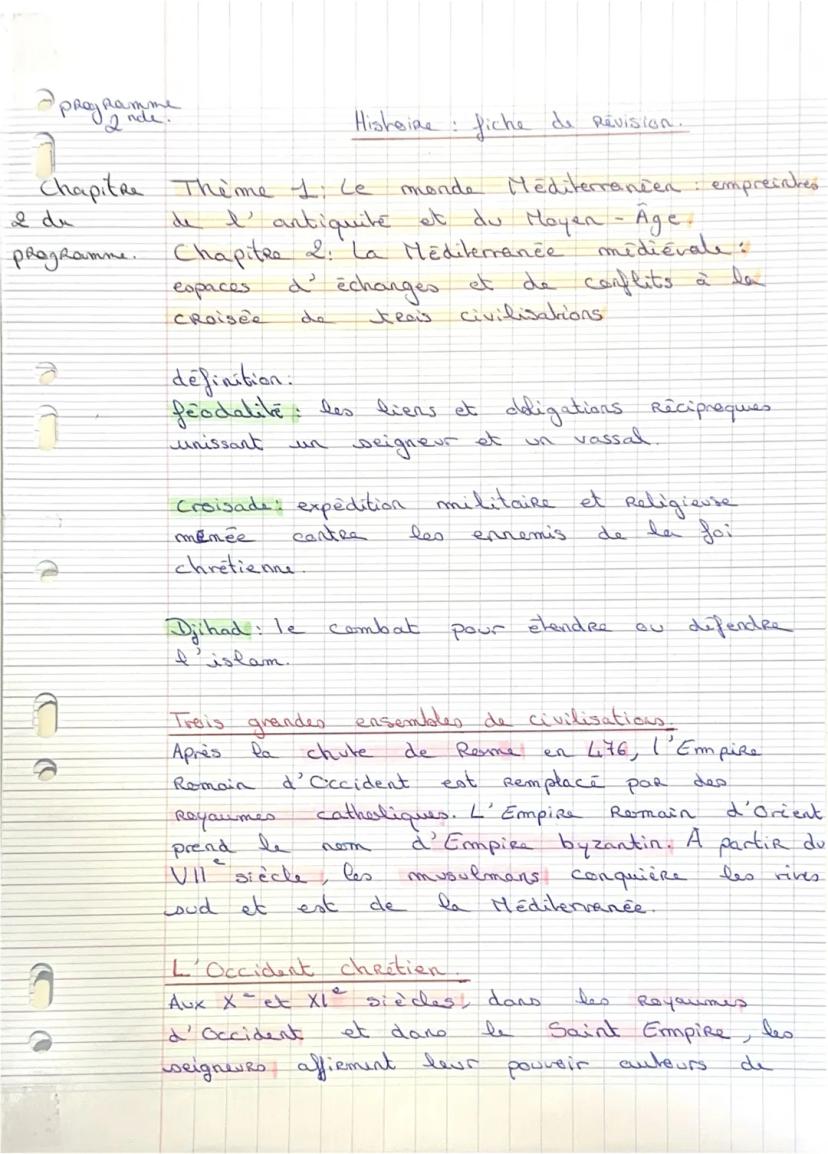 programme
2nde.
Histoire : fiche de révision.
Chapitre
2 du
programme.
Thème 1: Le monde Méditerranéen : empreintes
de l'antiquité et du Moyen-Âge.
Chapitre 2: La Méditerranée médiévale :
espaces d'échanges et de conflits à la
croisée de trois civilisations
définition:
féodalité: les liens et obligations réciproques
unissant un seigneur et un vassal.
Croisade: expédition militaire et religieuse
menée contre les ennemis de la foi
chrétienne.
Djihad: le combat pour étendre ou défendre
l'islam.
Trois grandes ensembles de civilisations.
Après la chute de Rome en 476, l'Empire
Romain d'Occident est remplacé par des
royaumes catholiques. L'Empire Romain d'Orient
prend le nom d'Empire byzantin. A partir du
VIIe siècle, les musulmans conquière les rives
sud et est de la Méditerranée.
L'Occident chrétien.
Aux Xe et XIe siècles, dans les royaumes
d'Occident et dans le Saint Empire, les
seigneurs affirment leur pouvoir autours de